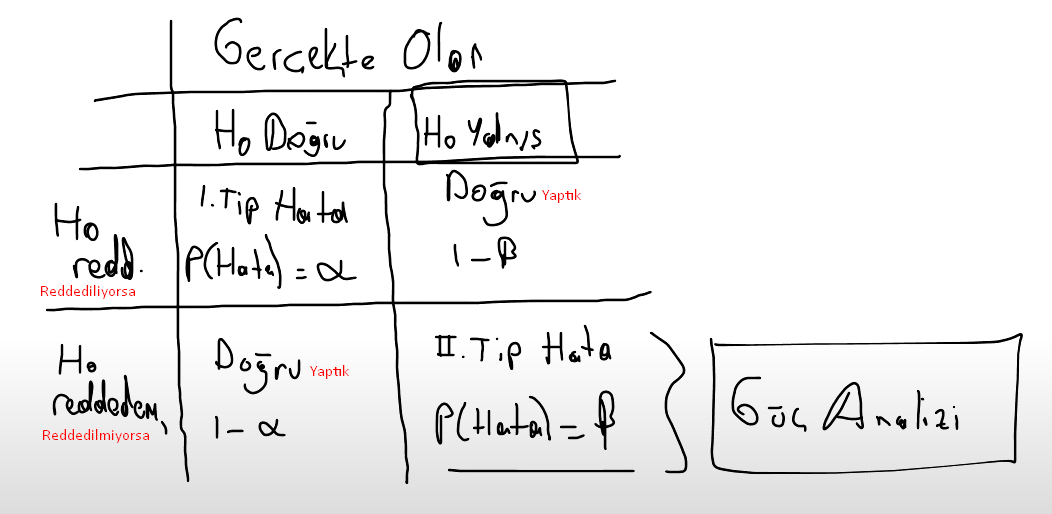 Gerçekte Olan
H0 Doğru
H0 Yalnış
H0
redd.
Reddediliyorsa
I. Tip Hata
P(Hata) = α
Doğru Yaptık
1 - β
H0
reddedem,
Reddedilmiyorsa
Doğru Yaptık
1 - α
II. Tip Hata
P(Hata) = β
Güç Analizi